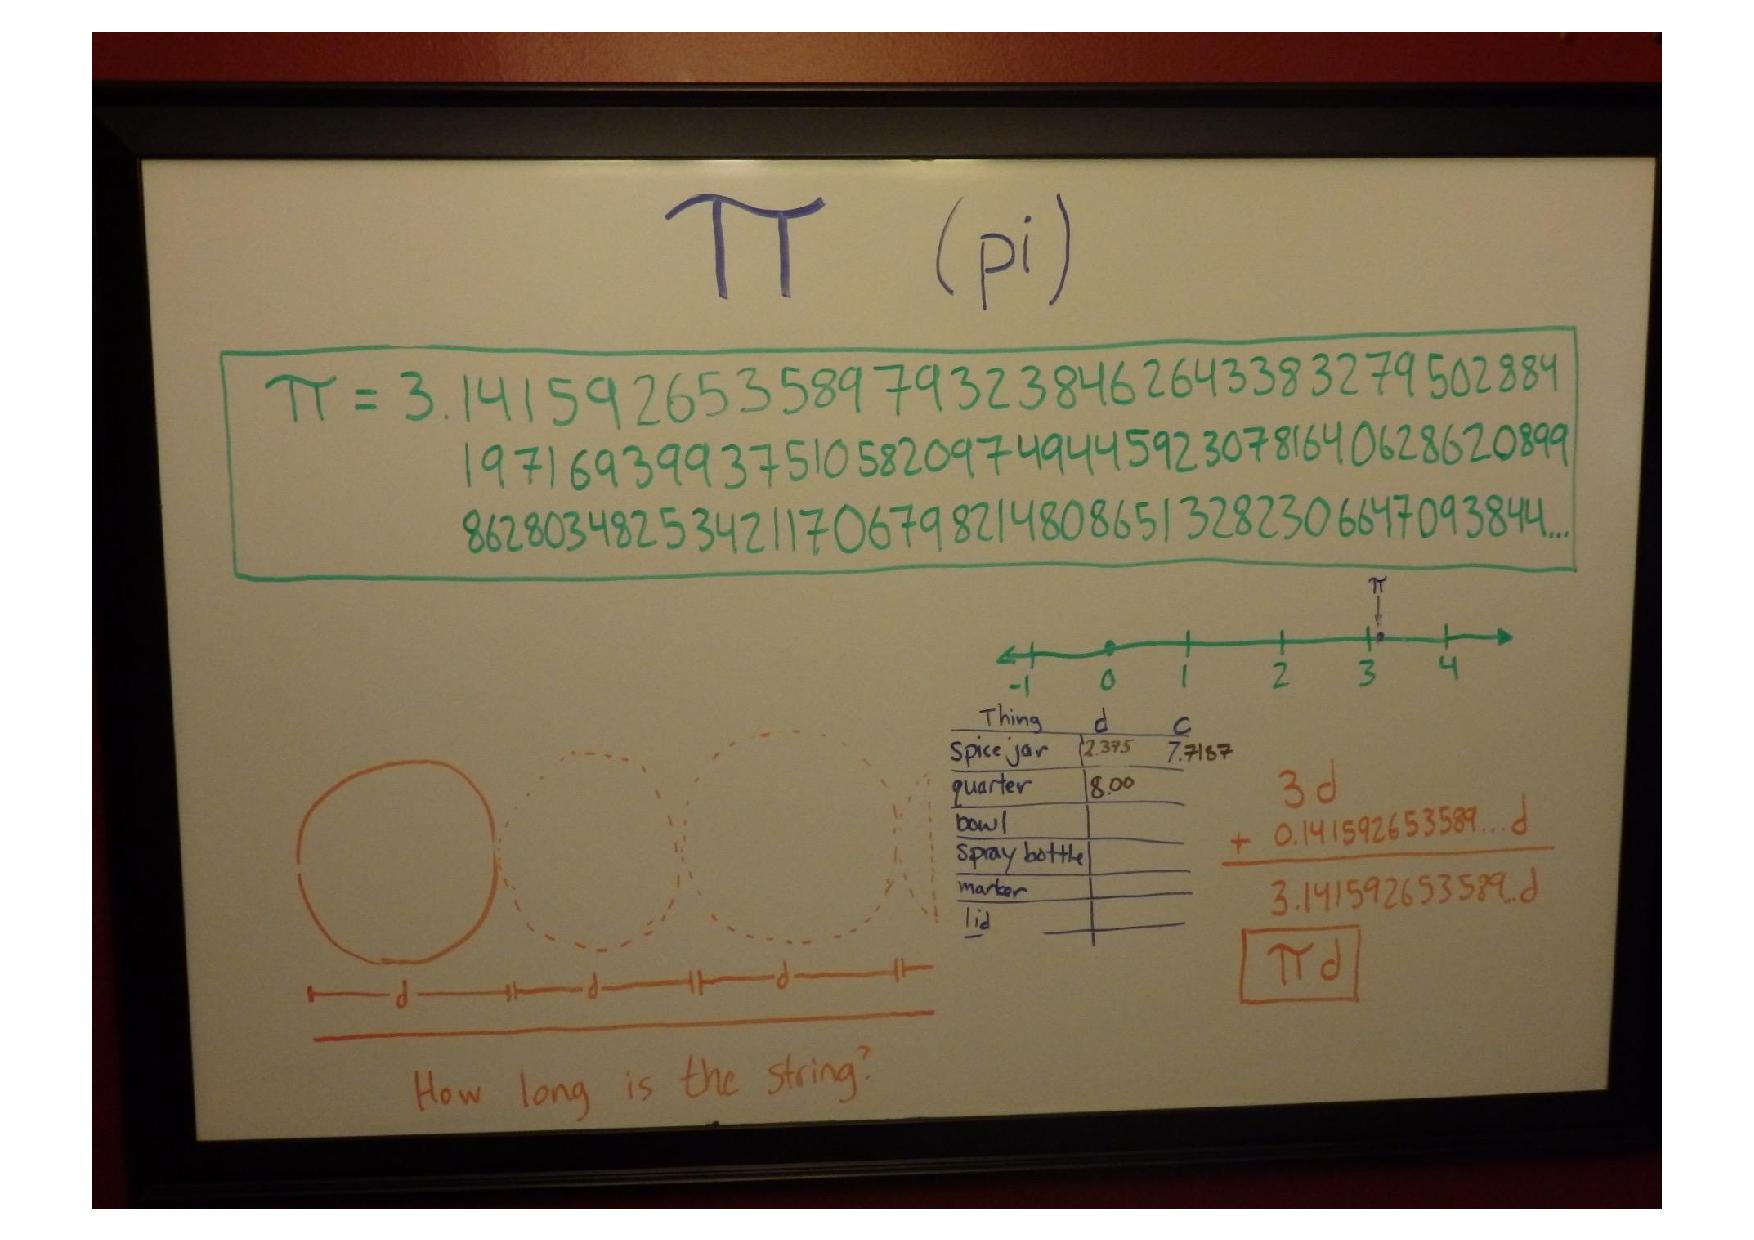 π (pi)
π = 3.14159265358979323846264338327950​2884
197169399375105820974944592307816406286208​99
862803482534211706798214808651328230664709​3844...
π
-1 0 1 2 3 4
Thing d C
Spice jar 2.375 7.7187
quarter 8.00
bowl
Spray bottle
marker
lid
3d
+ 0.141592653589...d
3.141592653589...d
πd
d d d
How long is the string?